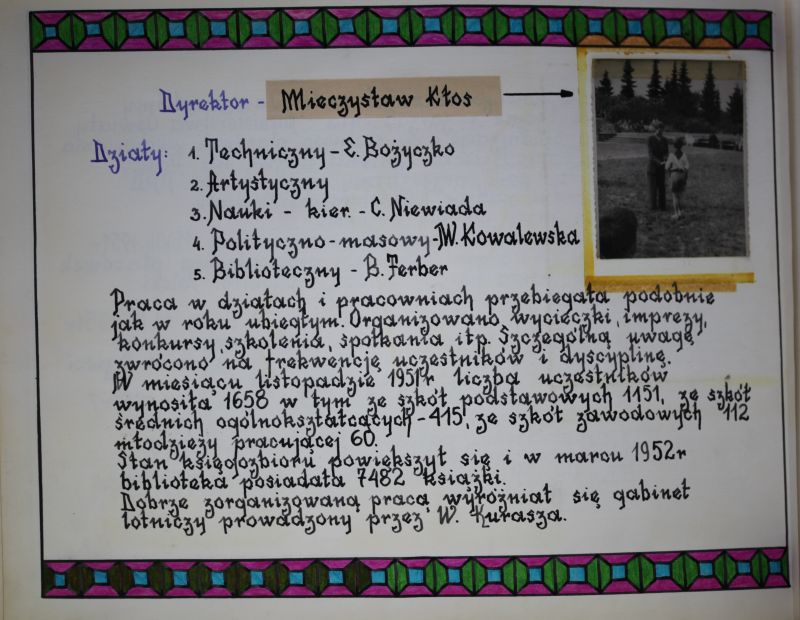 Dyrektor - Mieczysław Kłos
Działy: 1. Techniczny - E. Bożyczko
2. Artystyczny
3. Nauki - kier. - C. Niewiada
4. Polityczno-masowy - W. Kowalewska
5. Biblioteczny - B. Ferber
Praca w działach i pracowniach przebiegała podobnie
jak w roku ubiegłym. Organizowano wycieczki, imprezy,
konkursy, szkolenia, spotkania itp. Szczególną uwagę
zwrócono na frekwencję uczestników i dyscyplinę.
W miesiącu listopadzie 1951r liczba uczestników
wynosiła 1658 w tym ze szkół podstawowych 1151, ze szkół
średnich ogólnokształcących - 415, ze szkół zawodowych 112
młodzieży pracującej 60.
Stan księgozbioru powiększył się i w marcu 1952r
biblioteka posiadała 7482 książki.
Dobrze zorganizowaną pracą wyróżniał się gabinet
lotniczy prowadzony przez W. Kurasza.